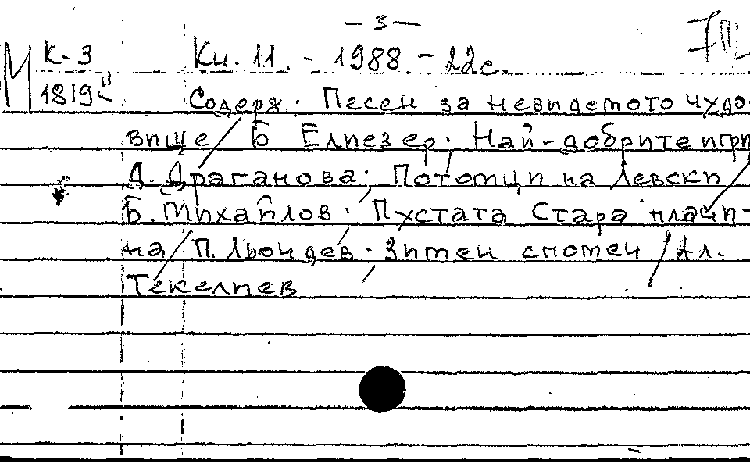 — 3 —
М К-3 Кн. 11. - 1988. - 22с.
1819
Содерж. Песен за невидетото чудо-
вище / Б. Елиезер. Най-добрите игри /
Д. Драганова. Потомци на Левски /
Б. Михайлов. Пустата Стара плани-
на / П. Льочдев. Зимен спомен / Ал.
Текелиев